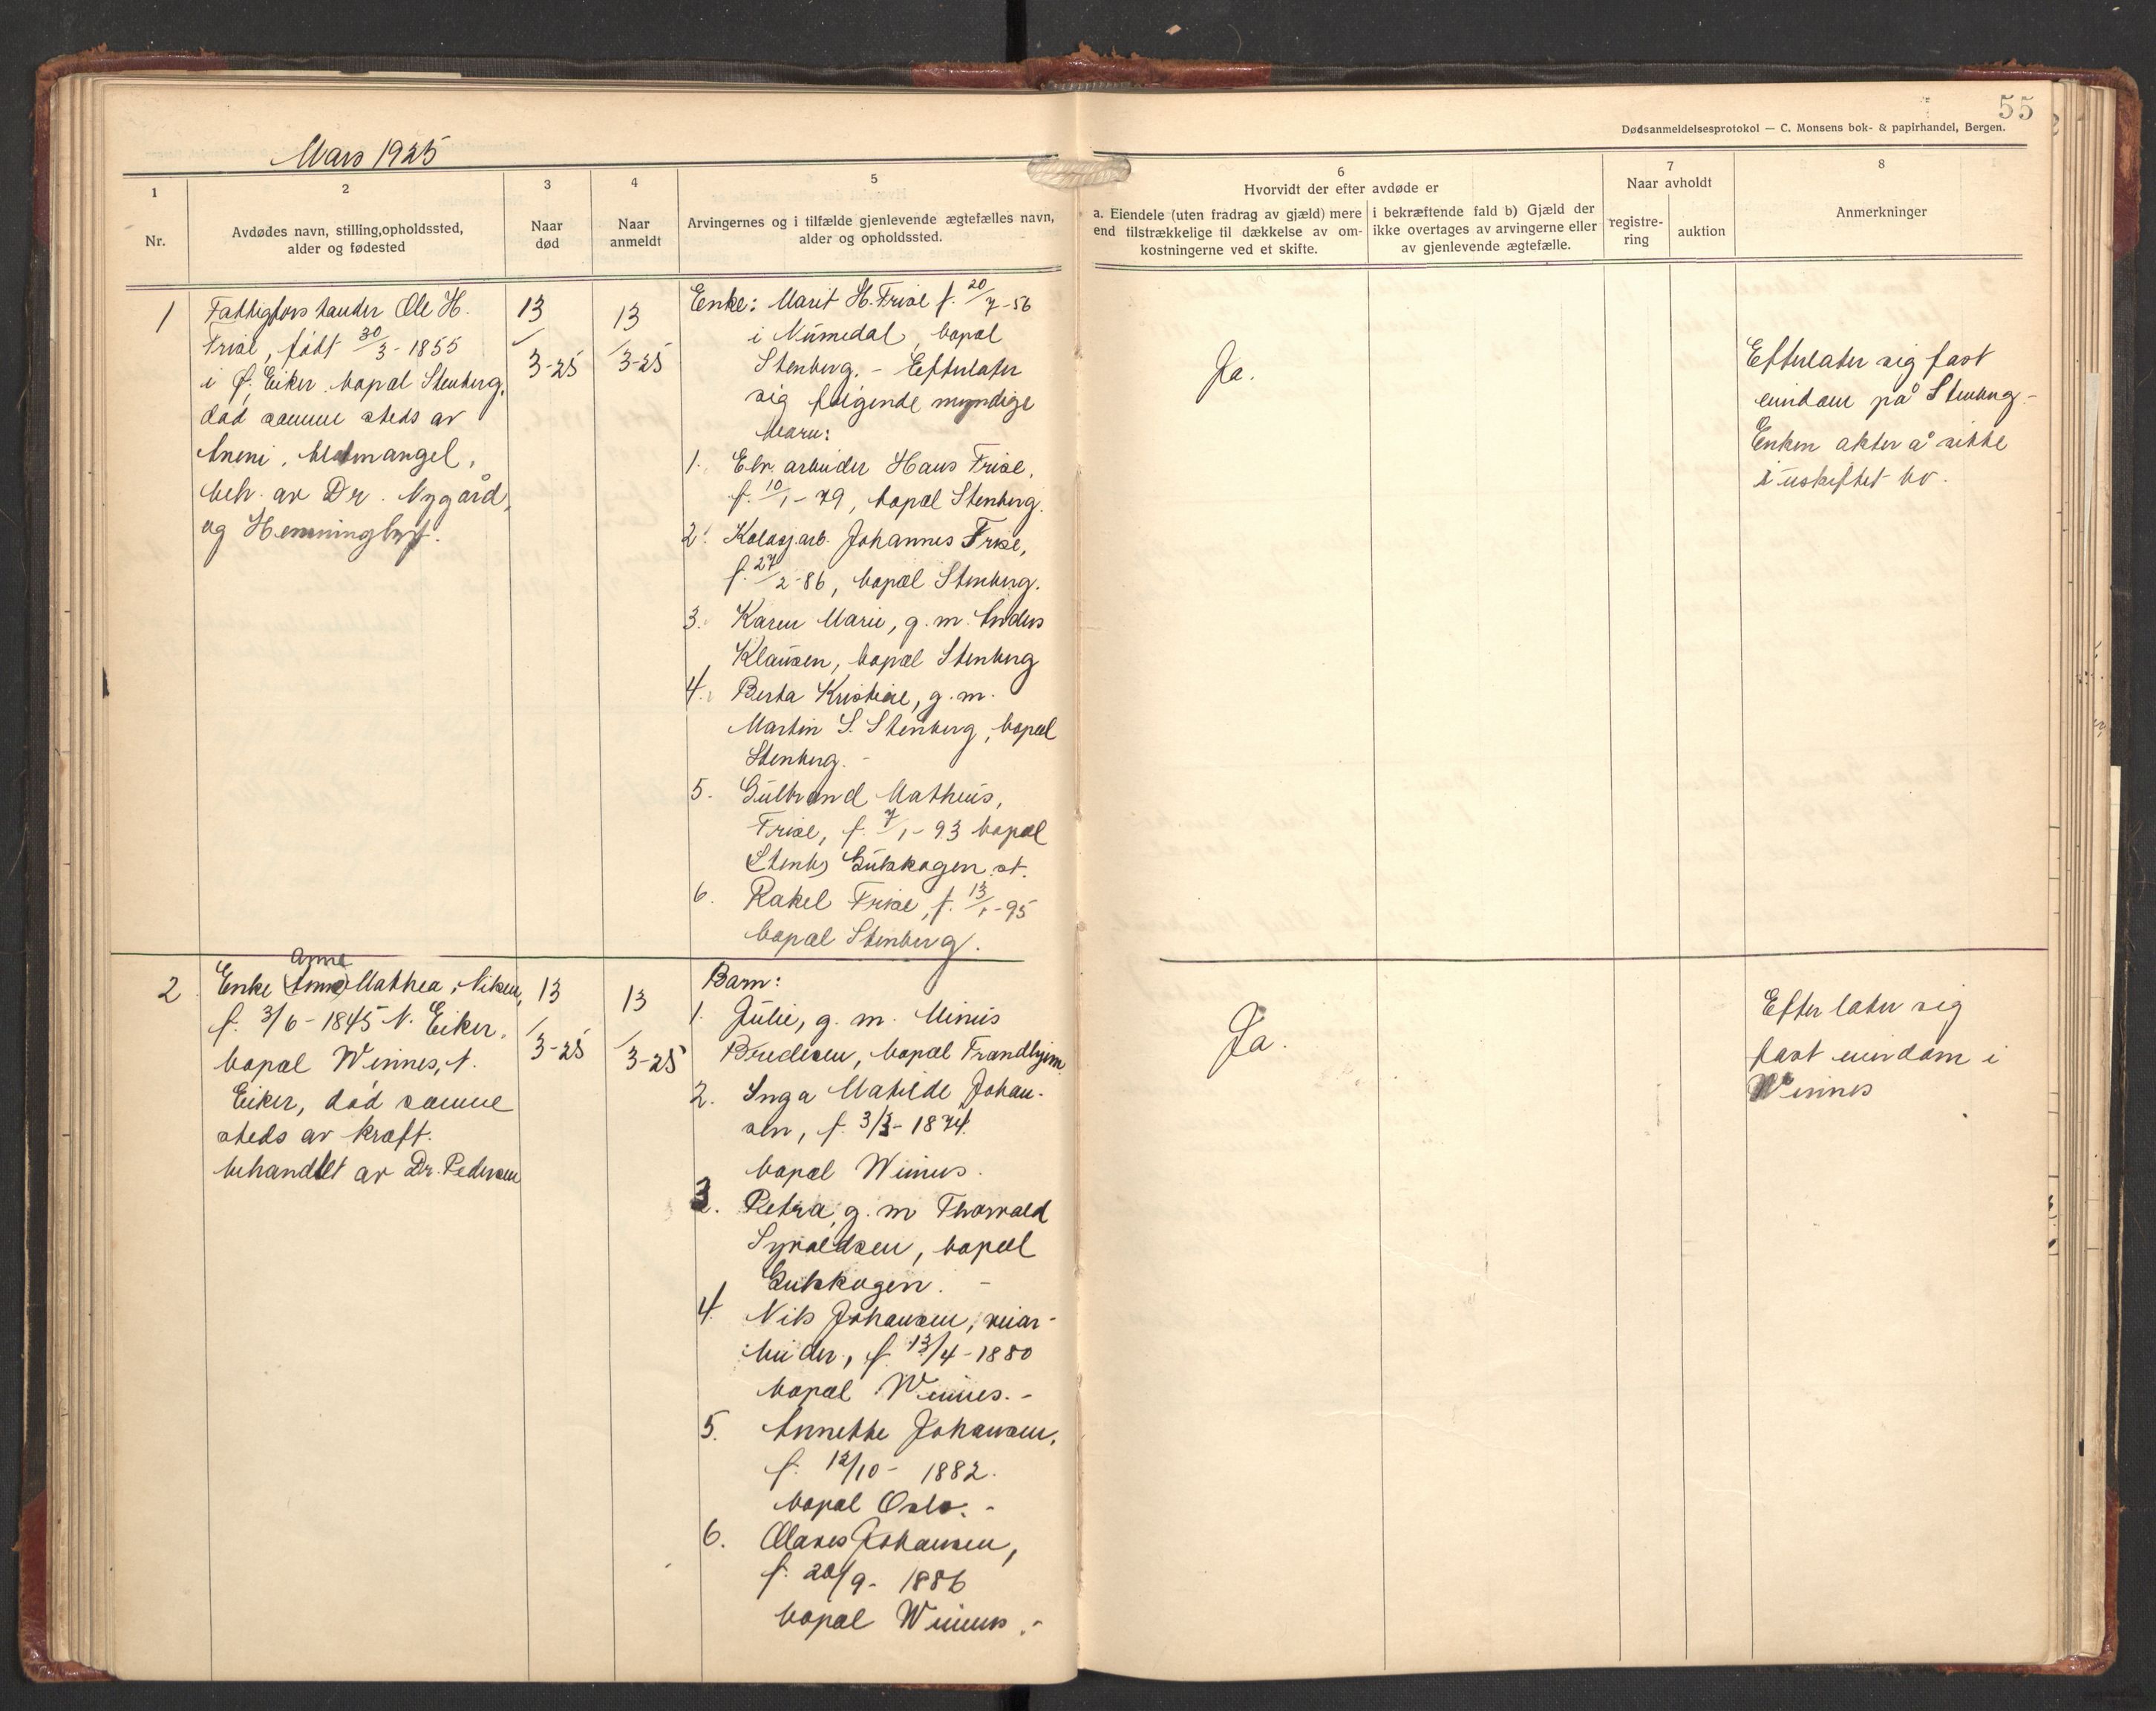 55
Dødsanmeldelsesprotokol — C. Monsens bok- & papirhandel, Bergen.
Mars 1925
1
Nr.
2
Avdødes navn, stilling, opholdssted,
alder og fødested
3
Naar
død
4
Naar
anmeldt
5
Arvingernes og i tilfælde gjenlevende ægtefælles navn,
alder og opholdssted.
6
Hvorvidt der efter avdøde er
a. Eiendele (uten fradrag av gjæld) mere
end tilstrækkelige til dækkelse av om-
kostningerne ved et skifte.
i bekræftende fald b) Gjæld der
ikke overtages av arvingerne eller
av gjenlevende ægtefælle.
7
Naar avholdt
registre-
ring
auktion
8
Anmerkninger
1
Fattigforstander Ole H.
Friæl, født 30/3-1855
i Ø. Eiker. bopæl Stenberg,
død samme steds av
Anemi, blodmangel,
beh. av Dr. Nygård,
og Hemmingbyt.
13/3-25
13/3-25
Enke: Marit H. Friæl f. 20/7-56
i Numedal, bopæl
Stenberg. - Efterlater
sig følgende myndige
barn:
1. Elv. arbeider Hans Friæl,
f. 10/1-79, bopæl Stenberg.
2. Johannes Friæl,
f. 27/2-86, bopæl Stenberg.
3. Karen Marie, g. m. Anders
Klausen, bopæl Stenberg
4. Berta Kristine, g. m.
Martin S. Stenberg, bopæl
Stenberg. -
5. Gulbrand Matheus,
Friæl, f. 7/1-93 bopæl
Stenb, Gulskogen st.
6. Rakel Friæl, f. 13/1-95
bopæl Stenberg.
Ja.
Efterlater sig fast
eiendom på Stenberg -
Enken akter å sitte
i uskiftet bo.
2
Anna
Enke (Anna) Mathea Niken,
f. 3/6-1845 N. Eiker.
bopæl Winnes, N.
Eiker, død samme
steds av kræft.
behandlet av Dr. Pedersen
13/3-25
13/3-25
Barn:
1. Julie, g. m. Minius
Bredesen, bopæl Trondhjem
2. Inga Mathilde Johan-
sen, f. 3/3-1874.
bopæl Winnes.
3. Petra, g. m Thorvald
Syvaldsen, bopæl
Gulskogen. -
4. Nils Johansen, veiar-
beider, f. 13/4-1880
bopæl Winnes. -
5. Annette Johansen,
f. 12/10-1882.
bopæl Oslo. -
6. Johansen,
f. 20/9-1886
bopæl Winnes. -
Ja.
Efterlater sig
fast eiendom i
Winnes